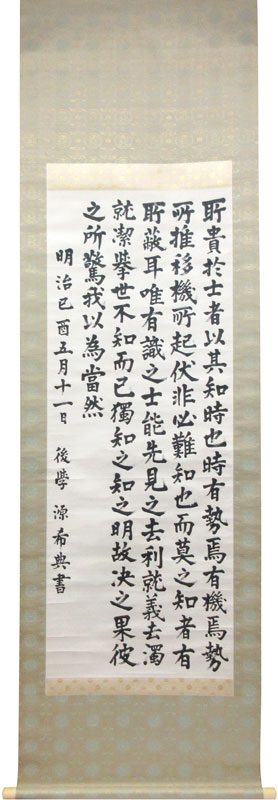 所貴於士者以其知時也時有勢焉有機焉勢
所推移機所起伏非必難知也而莫之知者有
所蔽耳唯有識之士能先見之去利就義去濁
就潔擧世不知而已獨知之知之明故决之果彼
之所驚我以為當然
明治己酉五月十一日 後學 源希典書